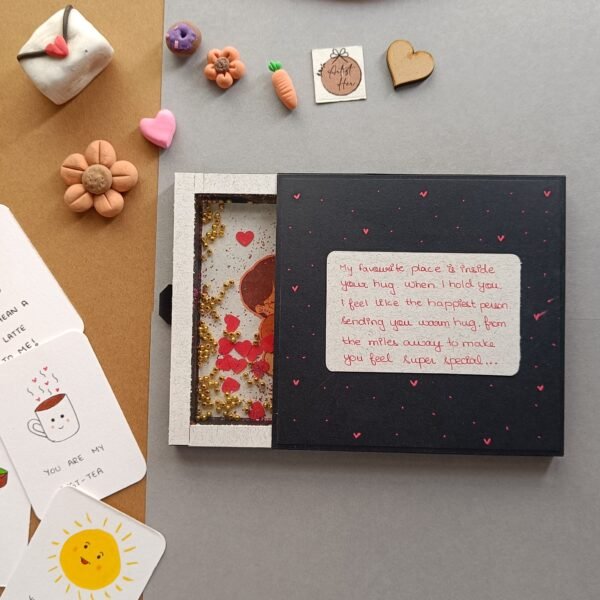 Artist
Her
My favourite place is inside
your hug when I hold you.
I feel like the happiest person
sending you warm hug from
the miles away to make
you feel super special...
MEAN A
LATTE
TO ME!
YOU ARE MY